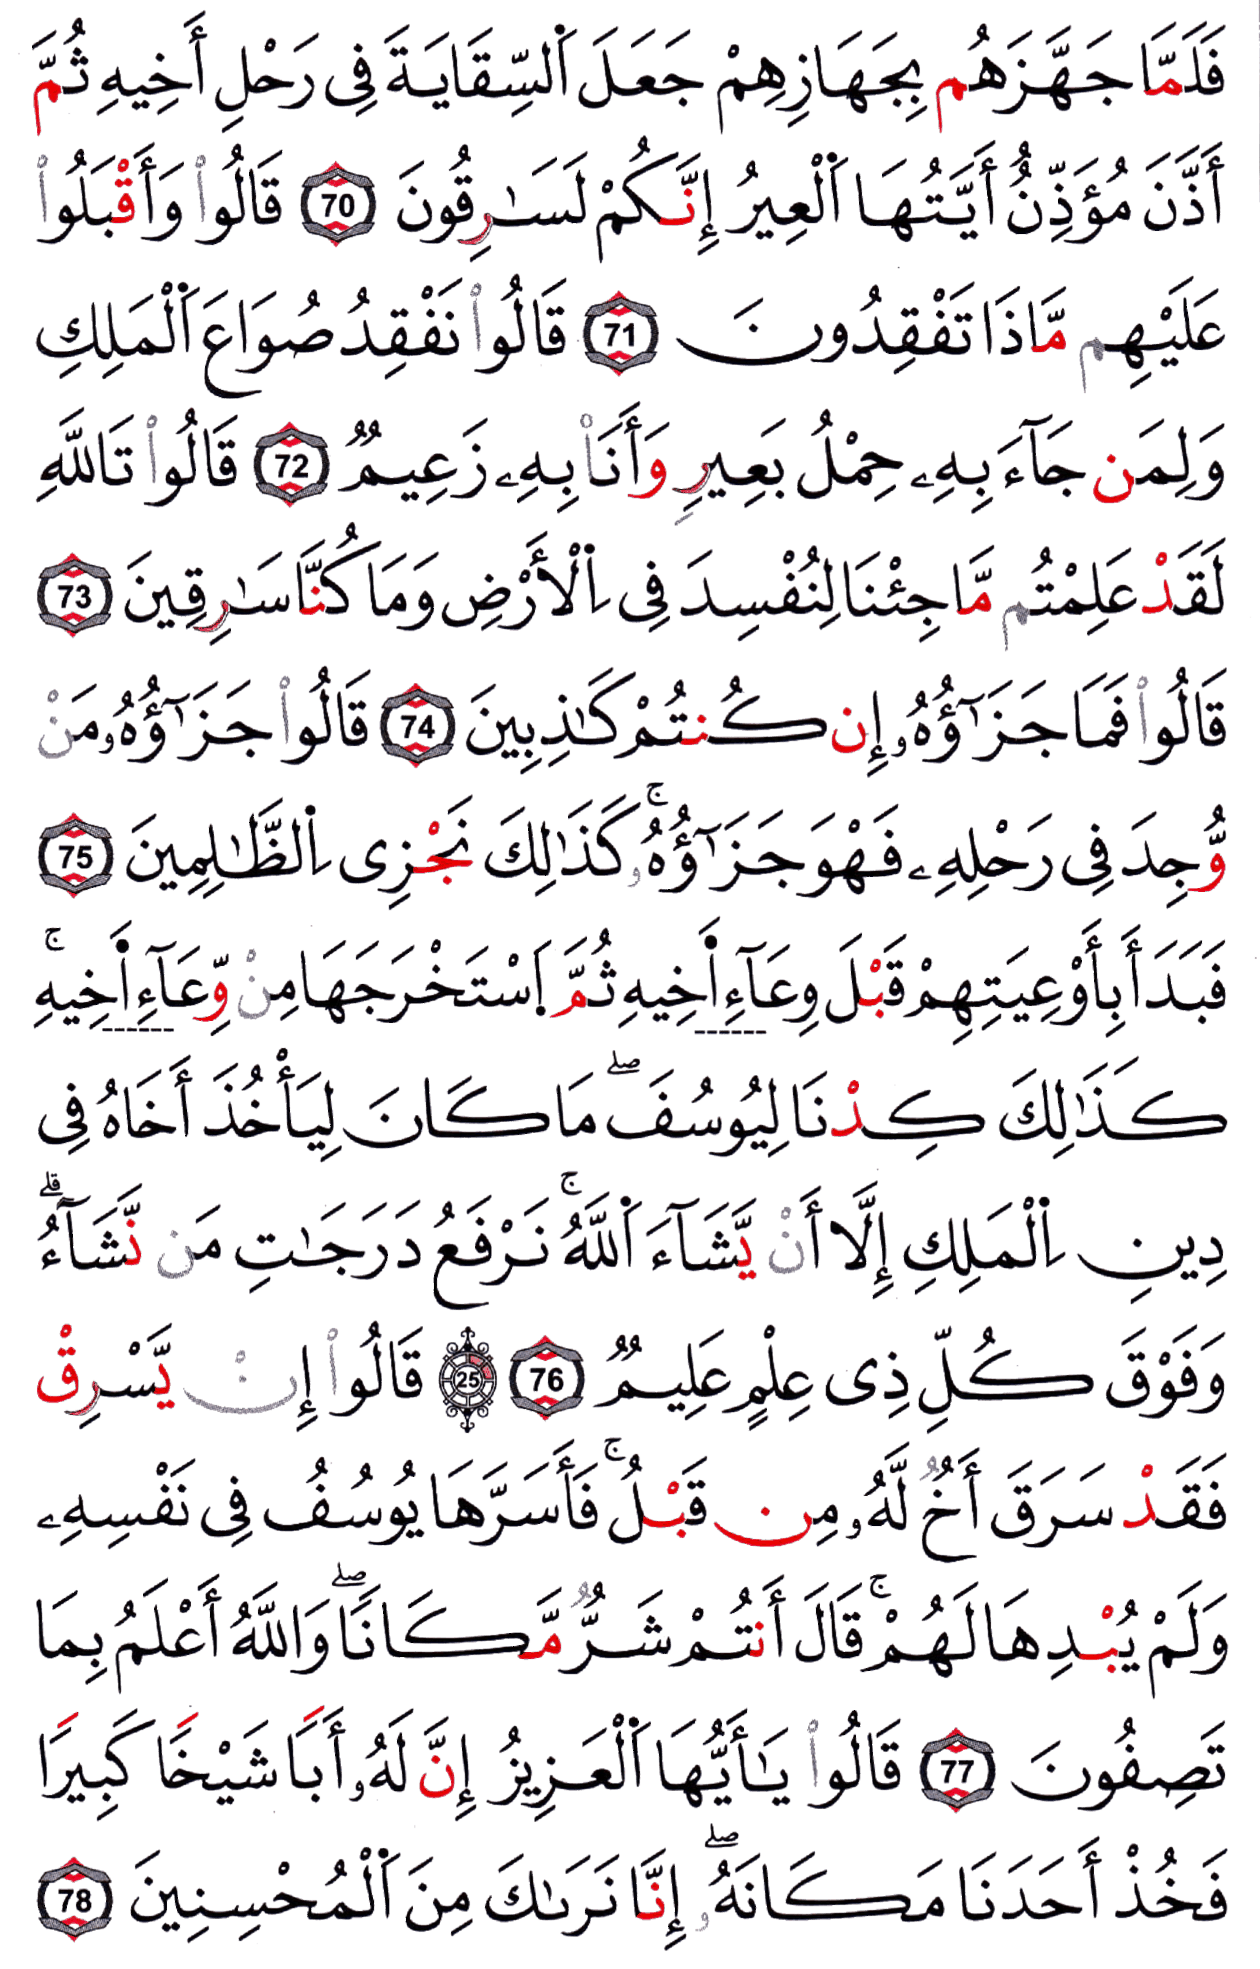 فَلَمَّا جَهَّزَهُم بِجَهَازِهِمْ جَعَلَ اَ۬لسِّقَايَةَ فِى رَحْلِ أَخِيهِ ثُمَّ
أَذَّنَ مُؤَذِّنٌ أَيَّتُهَا اَ۬لْعِيرُ إِنَّكُمْ لَسَٰرِقُونَ 70 قَالُواْ وَأَقْبَلُواْ
عَلَيْهِم مَّاذَا تَفْقِدُونَ 71 قَالُواْ نَفْقِدُ صُوَاعَ اَ۬لْمَلِكِ
وَلِمَن جَآءَ بِهِۦ حِمْلُ بَعِيرٍ وَأَنَا۠ بِهِۦ زَعِيمٌ 72 قَالُواْ تَاللَّهِ
لَقَدْ عَلِمْتُم مَّا جِئْنَا لِنُفْسِدَ فِى اِ۬لْأَرْضِ وَمَا كُنَّا سَٰرِقِينَ 73
قَالُواْ فَمَا جَزَٰٓؤُهُۥ إِن كُنتُمْ كَٰذِبِينَ 74 قَالُواْ جَزَٰٓؤُهُۥ مَنْ
وُّجِدَ فِى رَحْلِهِۦ فَهْوَ جَزَٰٓؤُهُۥۚ كَذَٰلِكَ نَجْزِى اِ۬لظَّٰلِمِينَ 75
فَبَدَأَ بِأَوْعِيَتِهِمْ قَبْلَ وِعَآءِ اَ۬خِيهِ ثُمَّ اَ۪سْتَخْرَجَهَا مِنْ وِّعَآءِ اَ۬خِيهِۚ
كَذَٰلِكَ كِدْنَا لِيُوسُفَۖ مَا كَانَ لِيَأْخُذَ أَخَاهُ فِى
دِينِ اِ۬لْمَلِكِ إِلَّا أَنْ يَّشَآءَ اَ۬للَّهُۚ نَرْفَعُ دَرَجَٰتِ مَن نَّشَآءُۗ
وَفَوْقَ كُلِّ ذِى عِلْمٍ عَلِيمٌ 76 25 قَالُواْ إِنْ يَّسْرِقْ
فَقَدْ سَرَقَ أَخٌ لَّهُۥ مِن قَبْلُۚ فَأَسَرَّهَا يُوسُفُ فِى نَفْسِهِۦ
وَلَمْ يُبْدِهَا لَهُمْۚ قَالَ أَنتُمْ شَرٌّ مَّكَانًاۖ وَاللَّهُ أَعْلَمُ بِمَا
تَصِفُونَ 77 قَالُواْ يَٰأَيُّهَا اَ۬لْعَزِيزُ إِنَّ لَهُۥ أَبًا شَيْخًا كَبِيرًا
فَخُذْ أَحَدَنَا مَكَانَهُۥۖ إِنَّا نَرَىٰكَ مِنَ اَ۬لْمُحْسِنِينَ 78